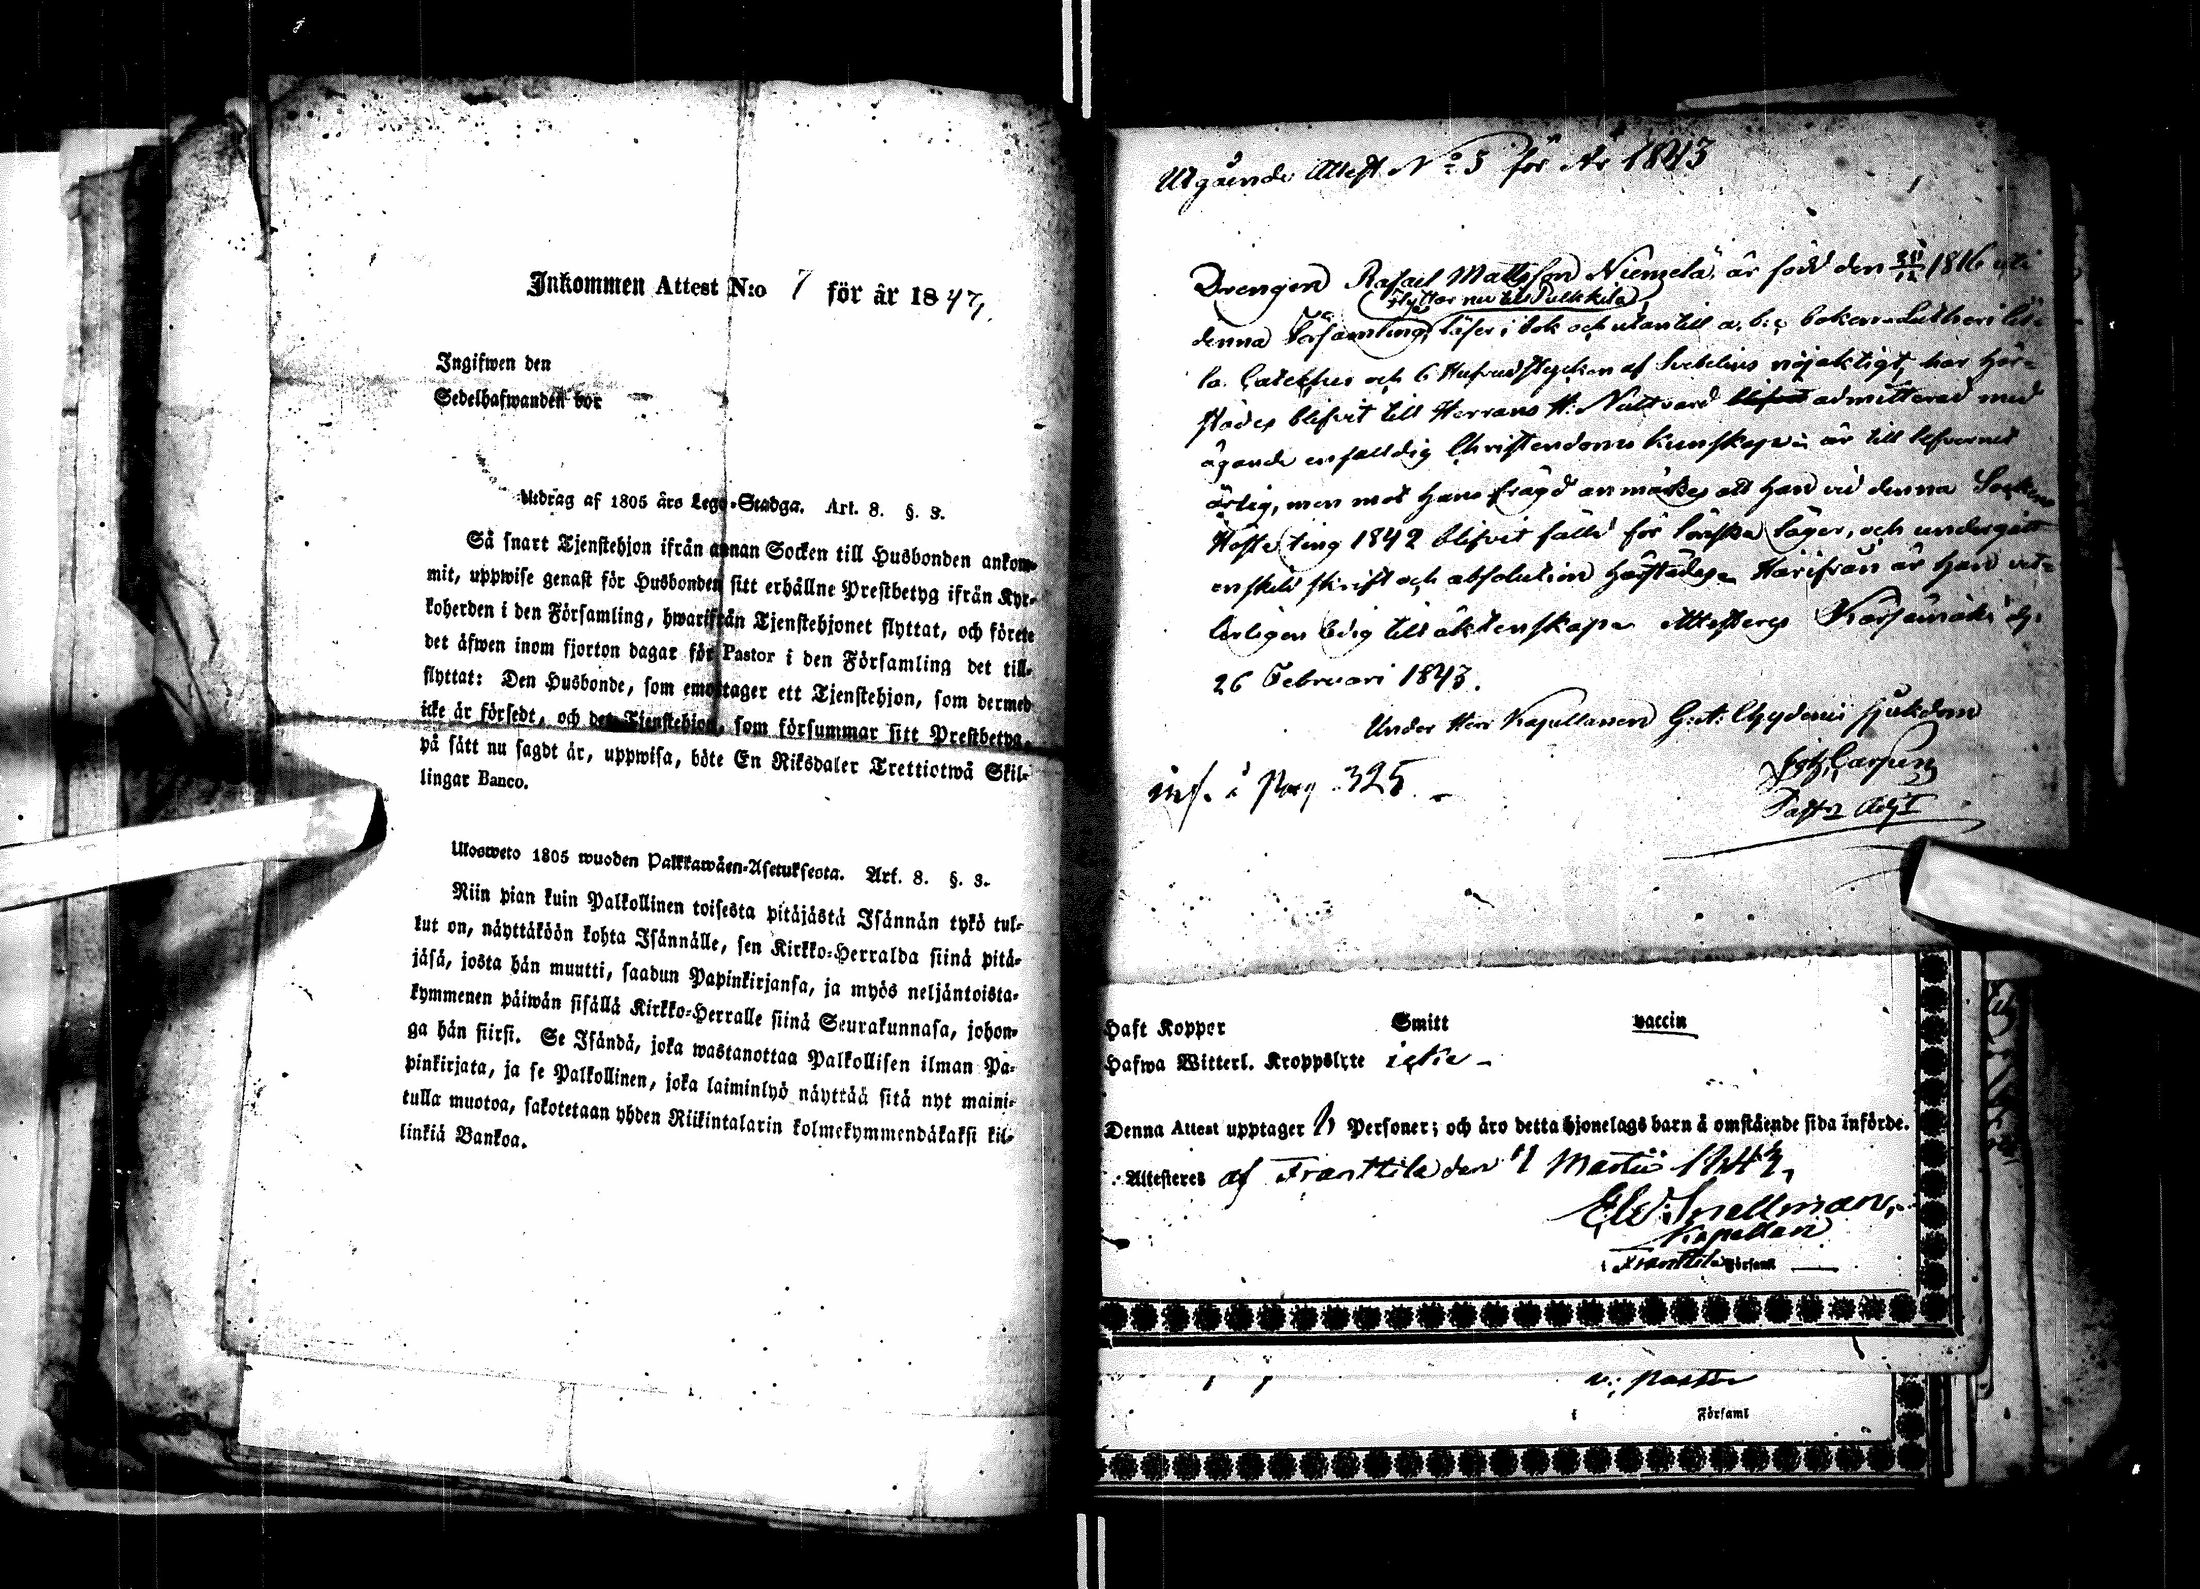 Inkommen Attest N:o 7 för år 1847.
Ingifwen den
Sedelhafwanden bor
Utdrag af 1805 års Lego-Stadga. Art. 8. §. 3.
Så snart Tjenstehjon ifrån annan Socken till Husbonden ankom-
mit, uppwise genast för Husbonden sitt erhållne Prestbetyg ifrån Kyr-
koherden i den Församling, hwarifrån Tjenstehjonet flyttat, och förete
det äfwen inom fjorton dagar för Pastor i den Församling det till-
flyttat: Den Husbonde, som emottager ett Tjenstehjon, som dermed
icke är försedt, och det Tjenstehjon, som försummar sitt Prestbetyg,
på sätt nu sagdt är, uppwisa, böte En Riksdaler Trettiotwå Skil-
lingar Banco.
Ulosweto 1805 wuoden Palkkawäen-Asetuksesta. Art. 8. §. 3.
Niin pian kuin Palkollinen toisesta pitäjästä Isännän tykö tul-
kut on, näyttäköön kohta Isännälle, sen Kirkko-Herralda siinä pitä-
jäsä, josta hän muutti, saadun Papinkirjansa, ja myös neljäntoista-
kymmenen päiwän sisällä Kirkko-Herralle siinä Seurakunnasa, johon-
ga hän siirsi. Se Isändä, joka wastanottaa Palkollisen ilman Pa-
pinkirjata, ja se Palkollinen, joka laiminlyö näyttää sitä nyt maini-
tulla muotoa, sakotetaan yhden Riikintalarin kolmekymmendäkaksi kil-
linkiä Bankoa.
Utgående Attest No 5 för År 1843
Drengen Rafael Mattsson Niemelä, är född den 1816 uti
flyttar nu till Pulkkila
denna Församling, läser i bok och utantill a. b. c. boken Lutheri lil-
la Cateches och 6 Hufvudstycken af Svebelius nöjaktigt, har här-
städes blifvit till Herrans H. Nattvard admitterad med
ägande enfaldig Christendoms kunskap är till lefvernet
ärlig, men mot hans frägd anmärkes att han vid denna Sockens
Höste ting 1842 blifvit fälld för lönska läger, och undergått
enskild skrift och absolution härstädes. Härifrån är han vet-
terligen ledig till äktenskap. Attesteras Kärsämäki d.
26 Februari 1843.
Under Herr Kapellanen G. A. Chydenii sjukdom
inf. å Pag 325.
Haft Koppor Smitt vaccin
Hafwa Witterl. Kroppslyte icke -
Denna Attest upptager 1 Personer; och äro detta hjonelags barn å omstående sida införde.
Attesteras af Frantsila den 1 Martii
El. W. Snellman,
Kapellan
i Frantsila Församl.
v. pastor
i Församl